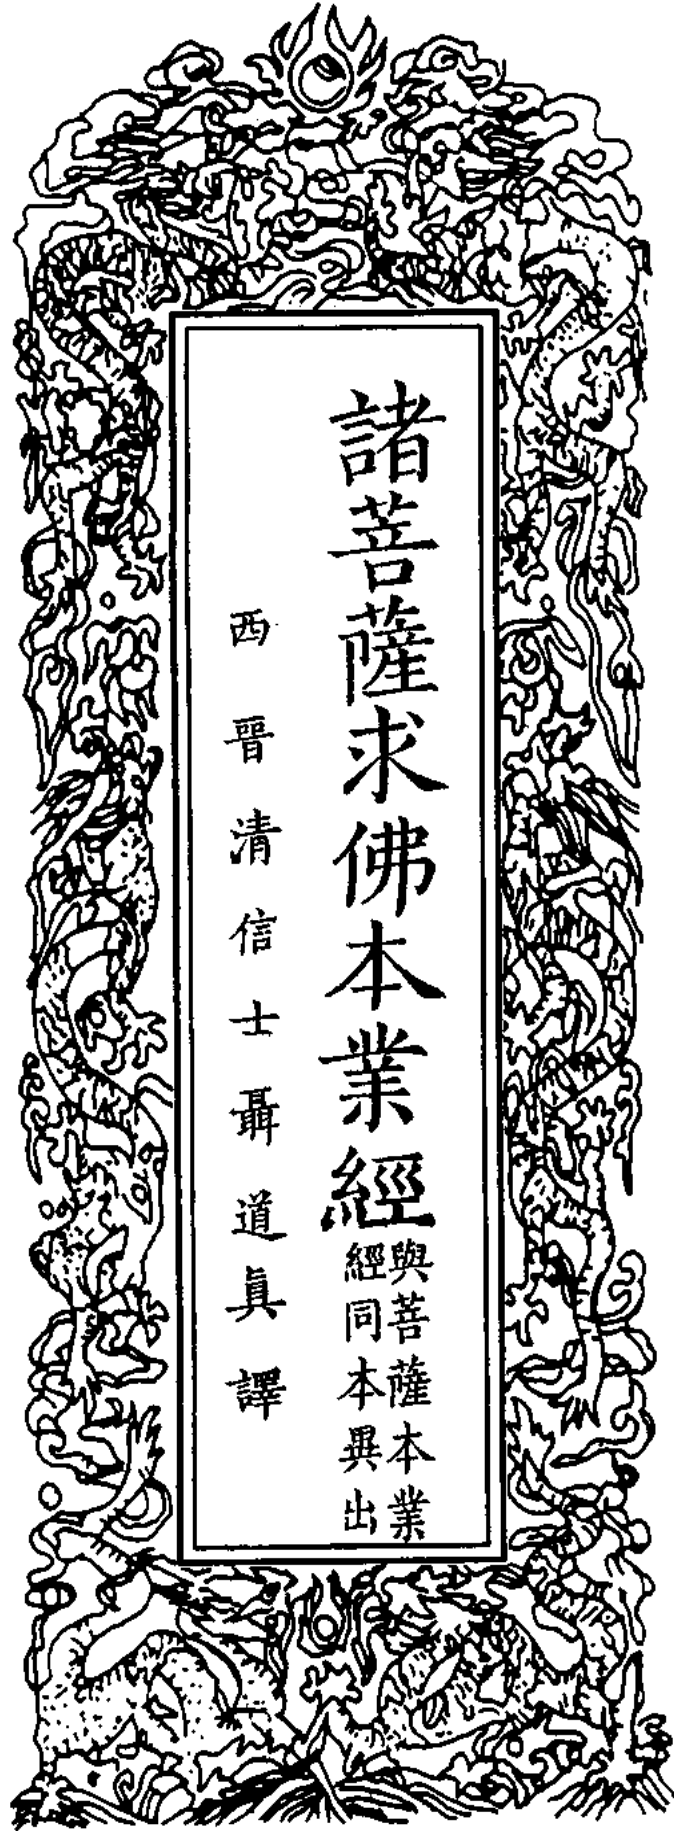 諸菩薩求佛本業經
與菩薩本業
經同本異出
西晉清信士聶道眞譯